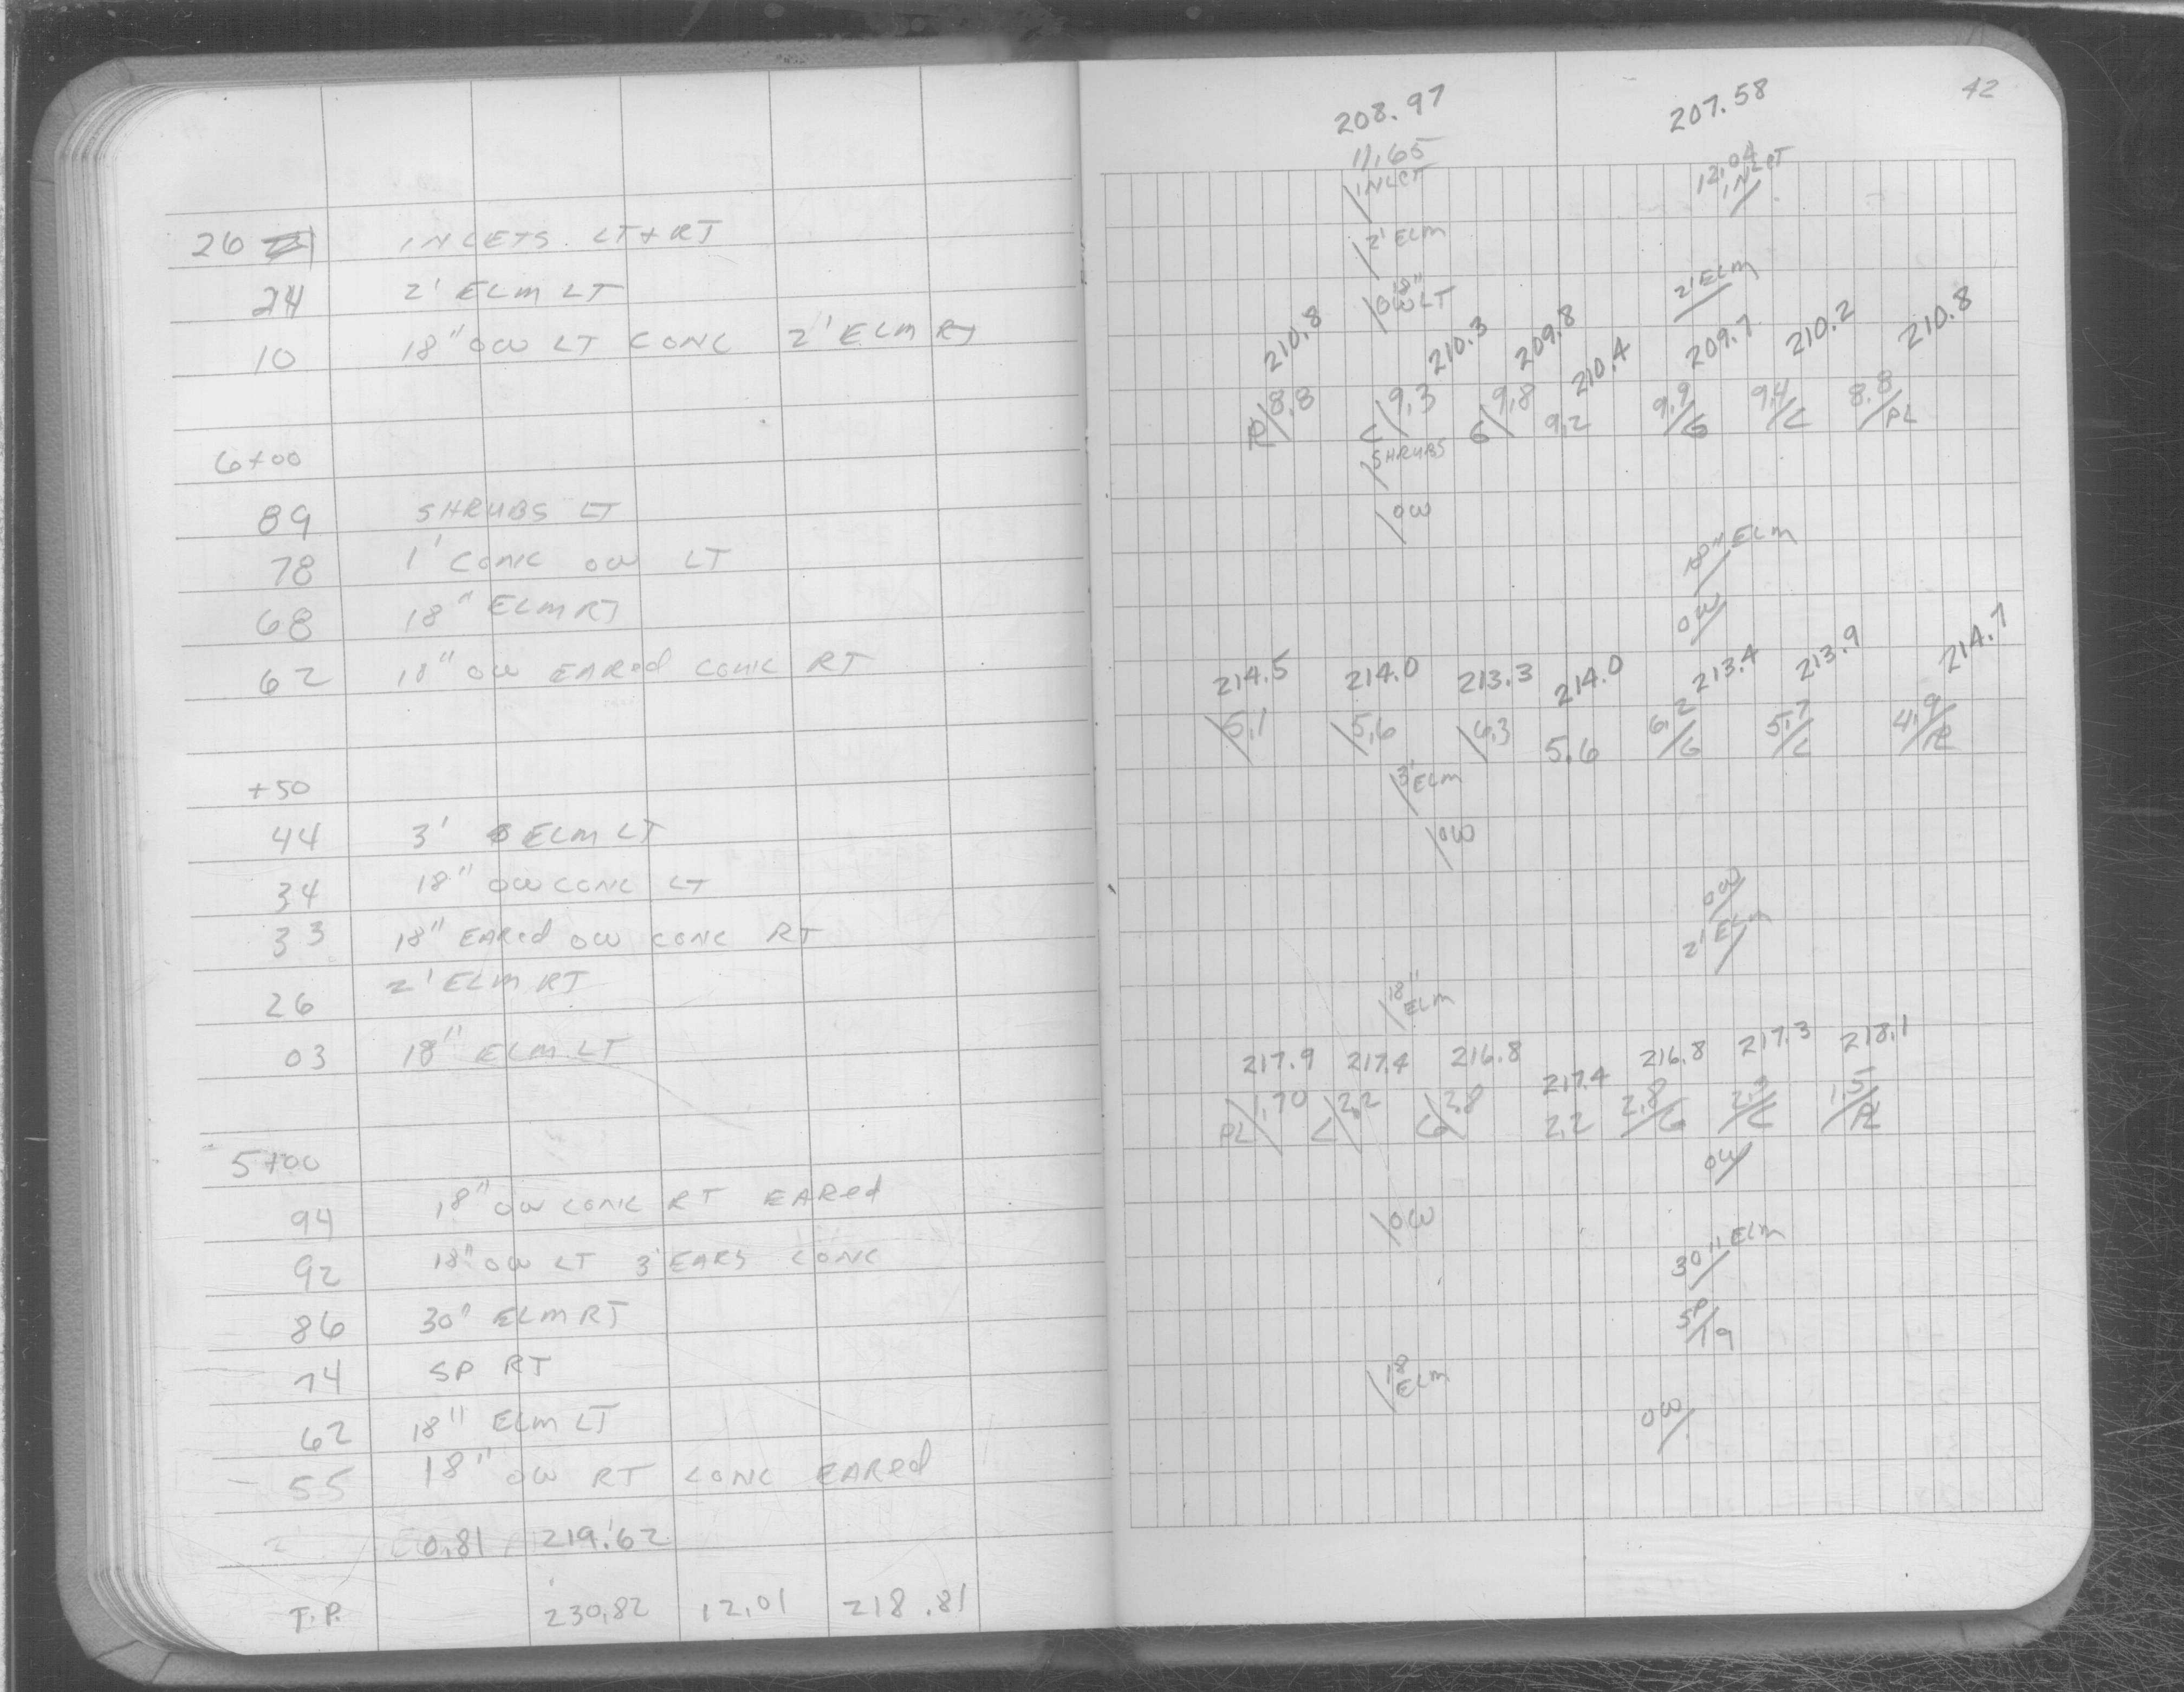 26 INLETS LT & RT
24 2' ELM LT
10 18" OW LT CONC 2' ELM RT
6+00
89 SHRUBS LT
78 1' CONC OW LT
68 18" ELM RT
62 18" OW EARed CONC RT
+50
44 3' ELM LT
34 18" OW CONC LT
33 18" EARed OW CONC RT
26 2' ELM RT
03 18" ELM LT
5+00
94 18" OW CONC RT EARed
92 18" OW LT 3' EARS CONC
86 30" ELM RT
74 SP RT
62 18" ELM LT
55 18" OW RT CONC EARed
0.81 219.62
T.P. 230.82 12.01 218.81
42
208.97 207.58
11.65 12.04
INLET INLET
2' ELM
18" OW LT 2' ELM
210.8 210.3 209.8 210.4 209.7 210.2 210.8
8.8 9.3 9.8 9.2 9.9 9.4 8.8
C G G C PL
SHRUBS
OW
18" ELM
OW
214.5 214.0 213.3 214.0 213.4 213.9 214.7
5.1 5.6 6.3 5.6 6.2 5.7 4.9
G C
3' ELM
OW
OW
2' ELM
18" ELM
217.9 217.4 216.8 217.4 216.8 217.3 218.1
1.70 2.2 2.8 2.2 2.8 1.5
PL C G G C PL
OW
OW
30" ELM
SP
19
18 ELM
OW